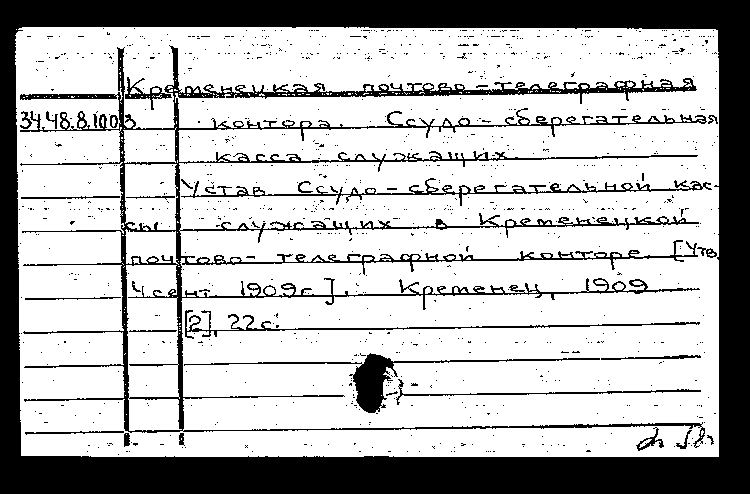 Кременецкая почтово-телеграфная
34.48.8.1003 контора. Ссудо-сберегательная
касса служащих
Устав Ссудо-сберегательной кас-
сы служащих в Кременецкой
почтово-телеграфной конторе. [Утв.
4 сент. 1909г.]. Кременец, 1909
[2], 22с.